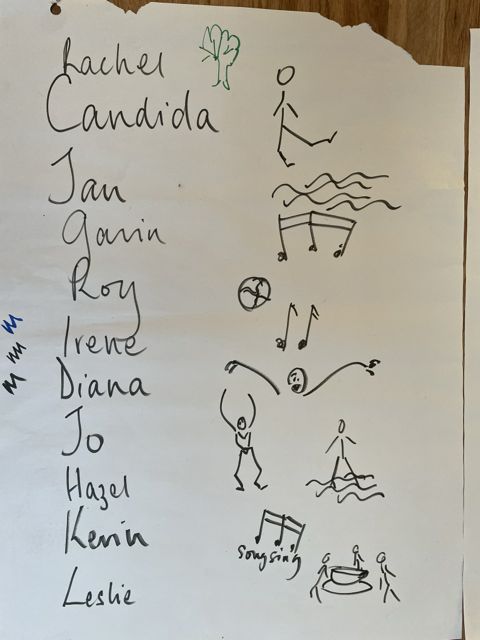 Rachel
Candida
Jan
Gavin
Roy
Irene
Diana
Jo
Hazel
Kevin
song sing
Leslie